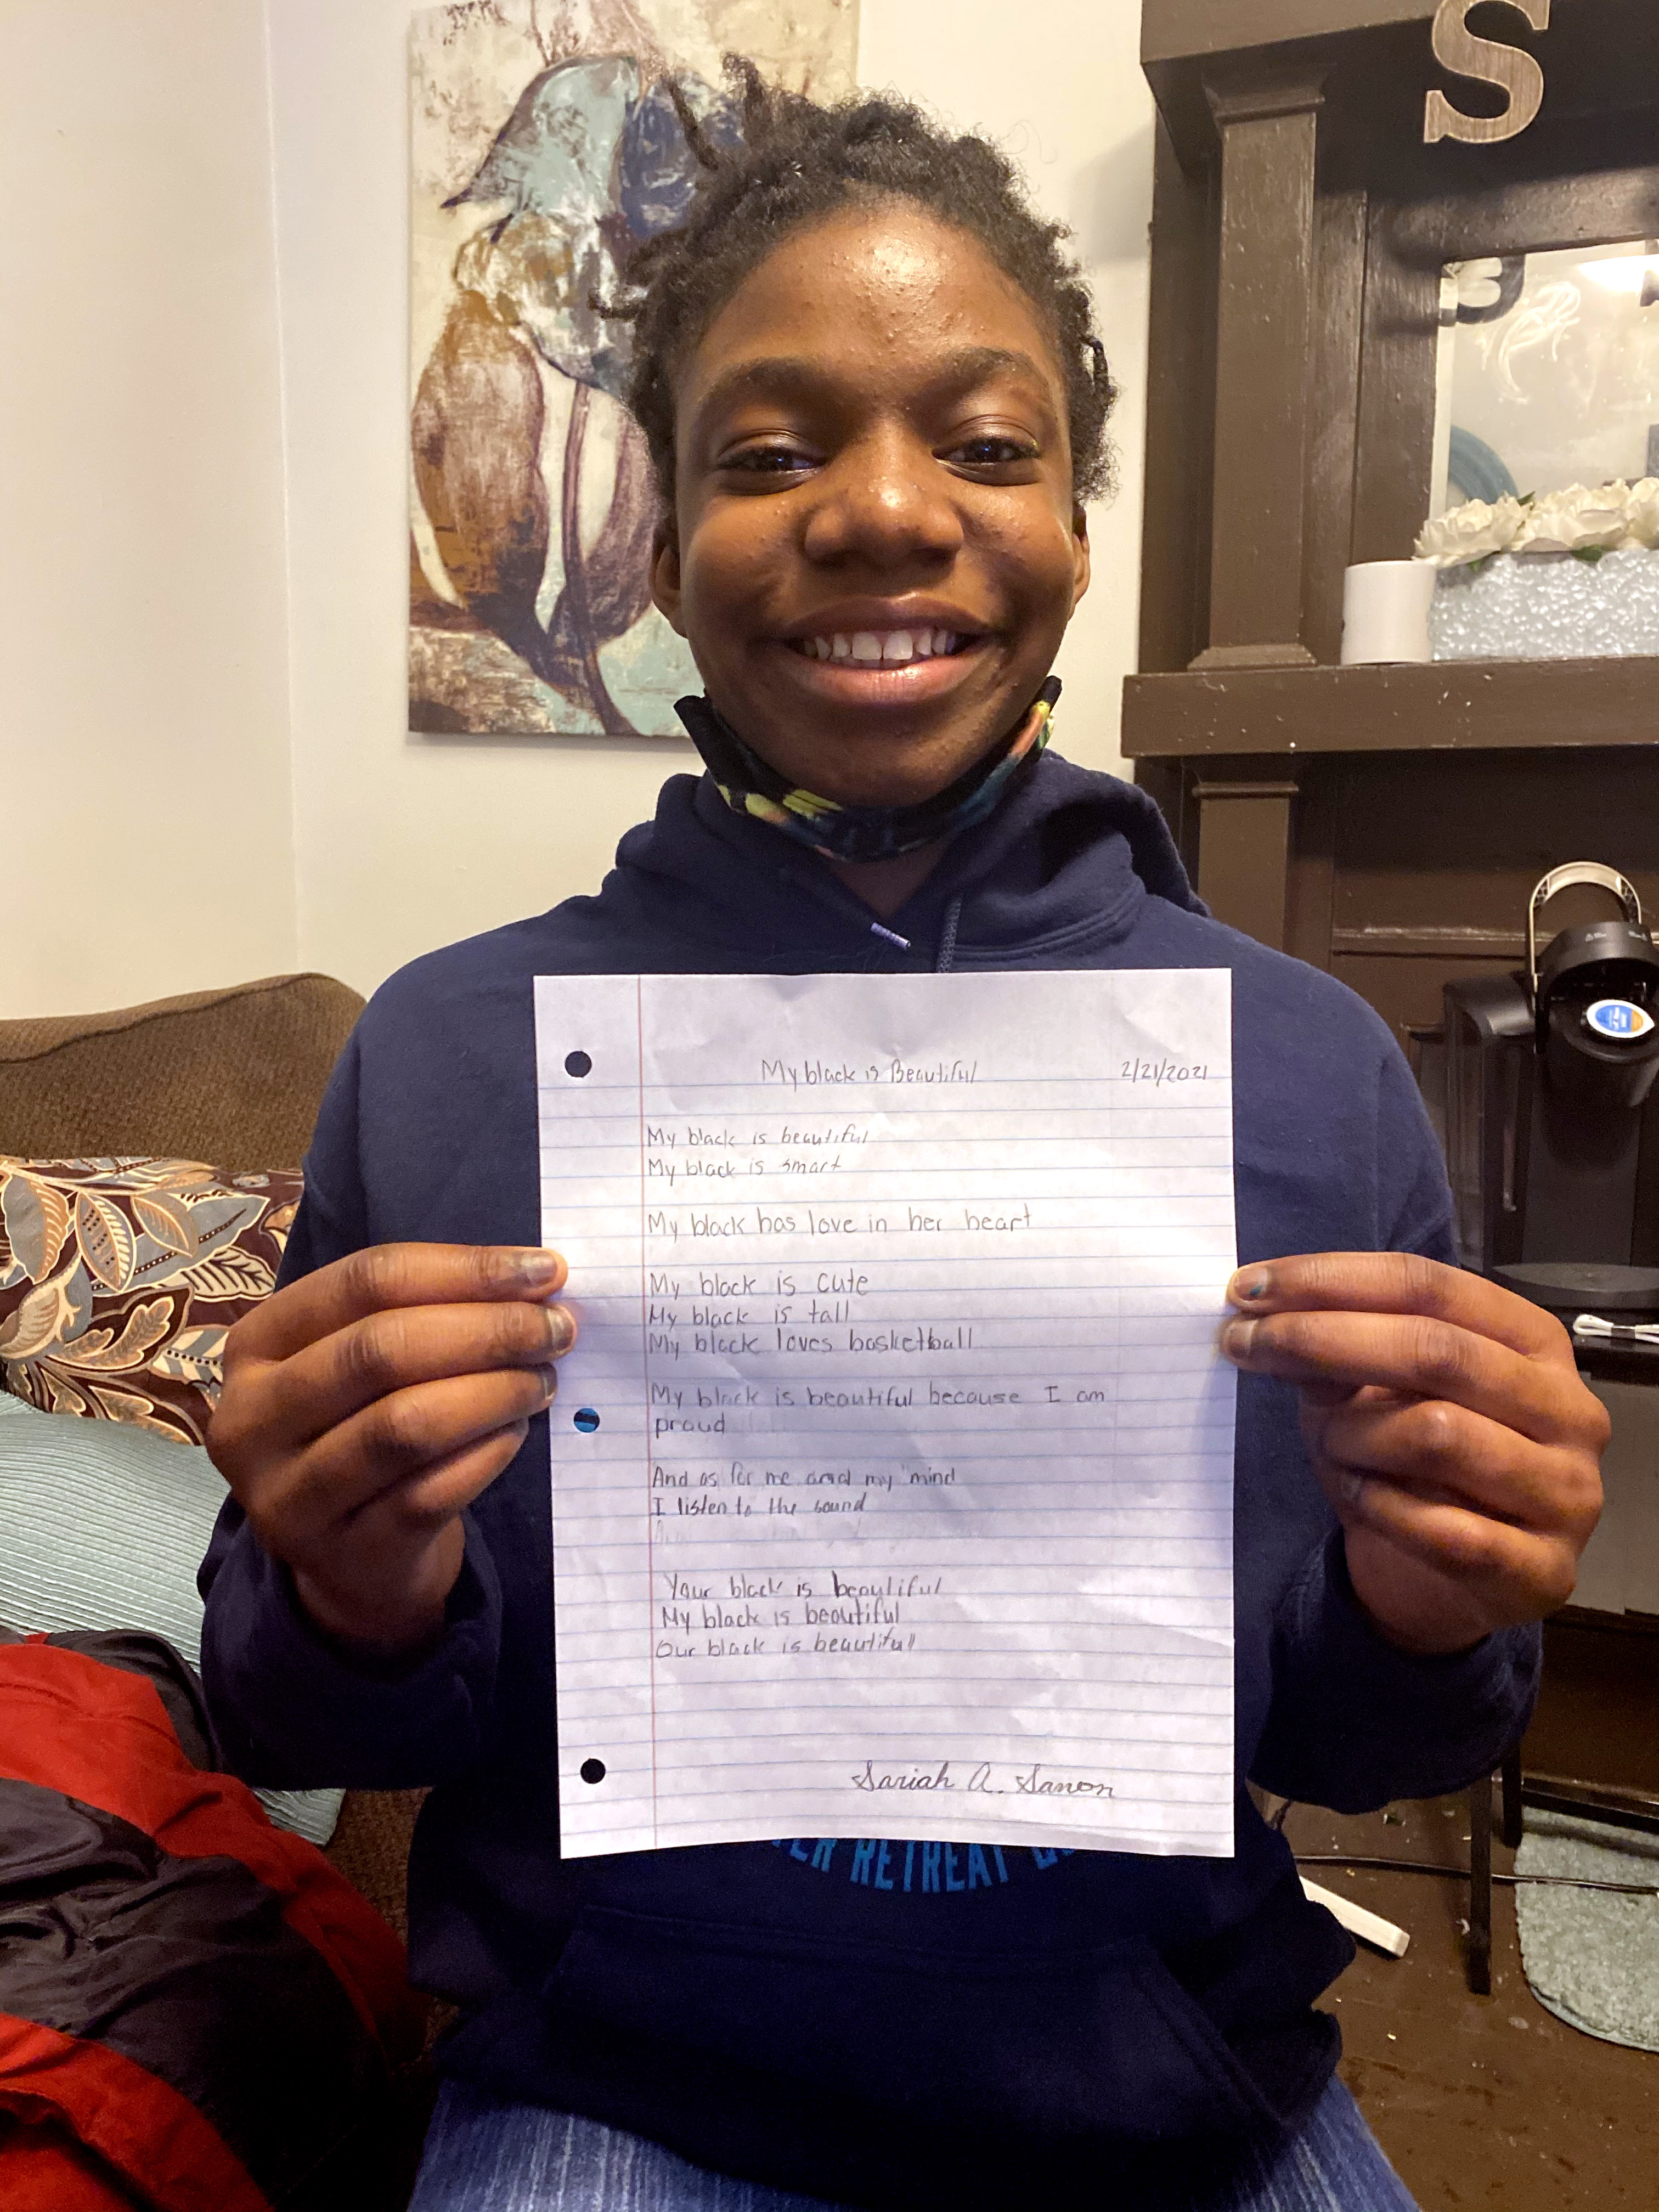 S
My black is Beautiful 2/21/2021
My black is beautiful
My black is smart
My black has love in her heart
My black is cute
My black is tall
My black loves basketball
My black is beautiful because I am
proud
And as for me and my mind
I listen to the sound
Your black is beautiful
My black is beautiful
Our black is beautifull
Sariah A. Sanon
RETREAT